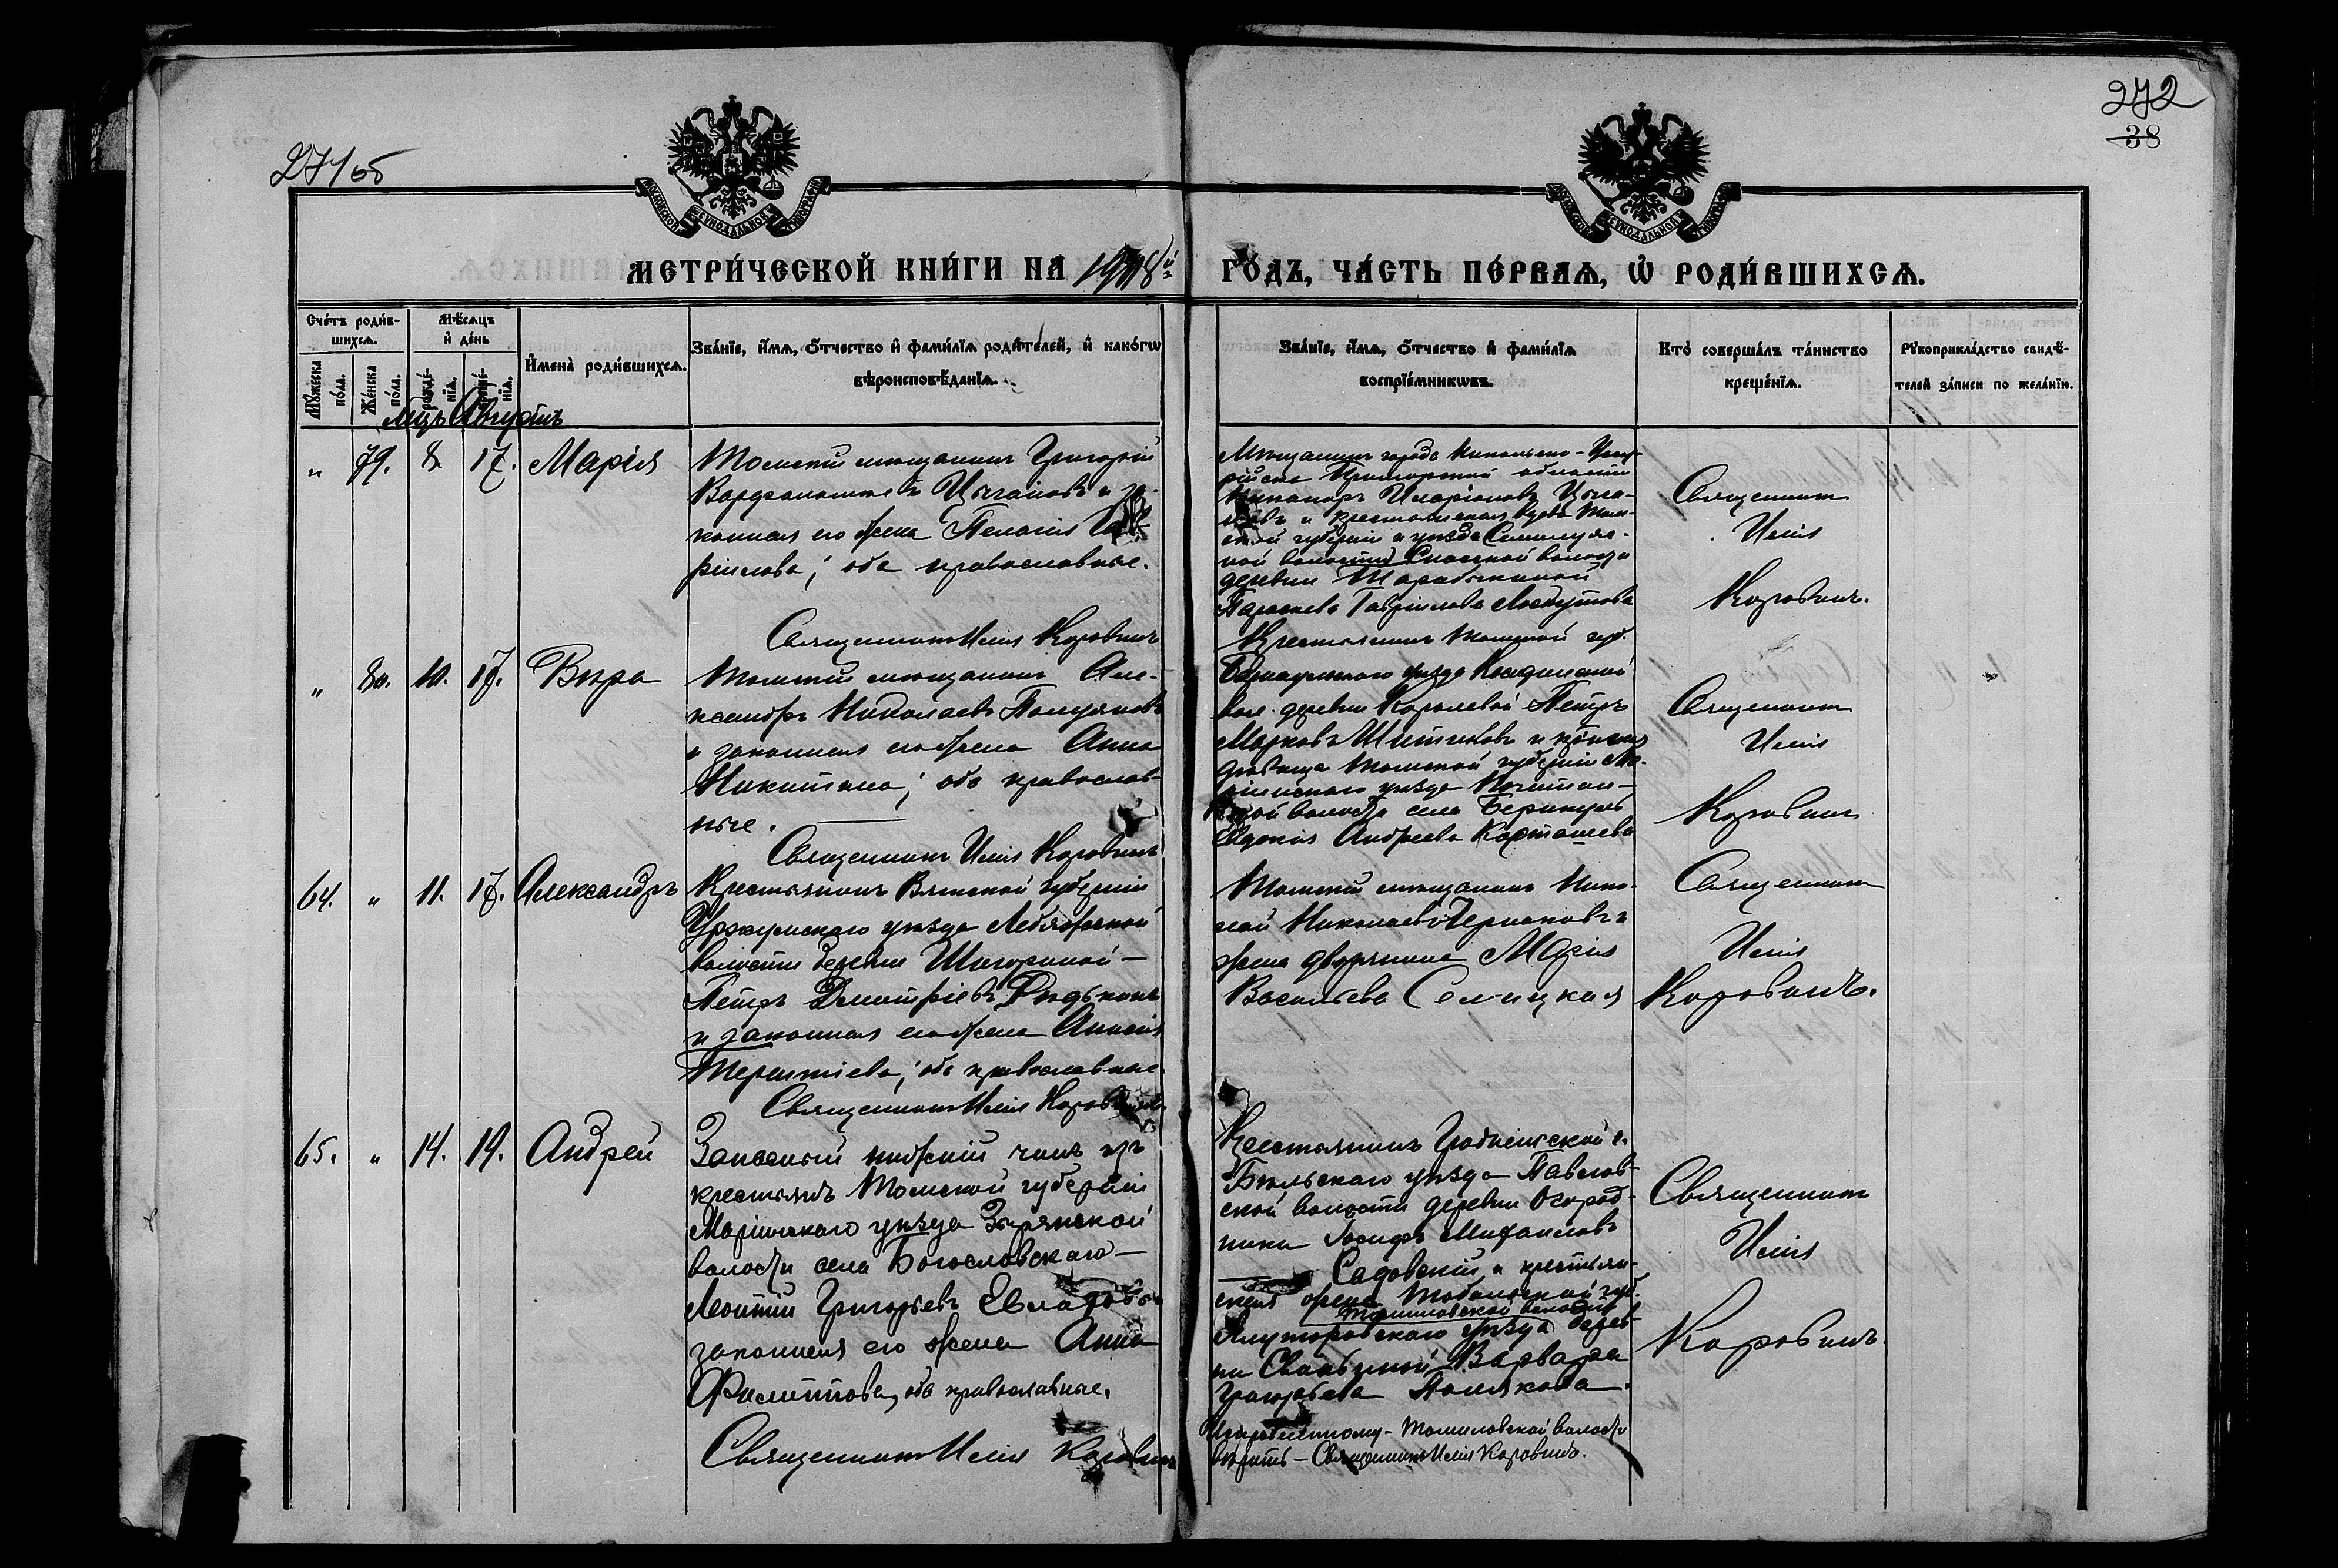 271об
272
38
МЕТРИ́ЧЕСКОЙ КНИ́ГИ НА 1908й ГО́ДЪ, ЧА́СТЬ ПЕ́РВАѦ, Ѡ РОДИ́ВШИХСѦ.
Сче́тъ роди́в-
шихсѧ.
Мѣ́сѧцъ
и де́нь
Мꙋ́жеска по́ла.
Же́нска по́ла.
рожде́нїѧ.
креще́нїѧ.
Имена̀ роди́вшихсѧ.
Зва́нїе, и́мѧ, о́тчество и фами́лїѧ роди́телей, и како́гѡ
вѣроисповѣ́данїѧ.
Зва́нїе, и́мѧ, о́тчество и фами́лїѧ
воспрїе́мникѡвъ.
Кто̀ соверша́лъ та́инство
креще́нїѧ.
Рꙋкоприкла́дство свидѣ́-
телей за́писи по жела́нїю.
Мцъ Августъ
" 79. 8. 17. Марія
Томскій мѣщанинъ Григорій
Варѳоломеевъ Цыгановъ и за-
конная его жена Пелагія Гав-
ріилова; оба православные.
Священникъ Илія Коровинъ
Мѣщанинъ города Никольско-Уссу-
рійска Приморской области
Никаноръ Иларіоновъ Цыга-
новъ и крестьянская вдова Том-
ской губерніи и уѣзда Семилуж-
ной волости Спасской волости
деревни
Параскева Гавріилова Лоскутова
Священникъ
Илія
Коровинъ.
" 80. 10. 17. Вѣра
Томскій мѣщанинъ Але-
ксандръ Николаевъ Полуяновъ
и законная его жена Анна
Никитина; оба православ-
ные.
Священникъ Илія Коровинъ
Крестьянинъ Томской губ.
Барнаульскаго уѣзда
вол. деревни Королевой Петръ
Марковъ и
дѣвица Томской губерніи Ма-
ріинскаго уѣзда Почитан-
ской волости села Берикуль
Евдокія Андреева Карташева
Священникъ
Илія
Коровинъ
64. " 11. 17. Александръ
Крестьянинъ Вятской губерніи
Уржумскаго уѣзда Лебяжской
волости деревни
Петръ Димитріевъ Рѣдькинъ
и законная его жена
Терентіева; оба православные
Священникъ Илія Коровинъ
Томскій мѣщанинъ Нико-
лай Николаевъ Черпаковъ и
жена дворянина Марія
Васильева Селицкая
Священникъ
Илія
Коровинъ.
65. " 14. 19. Андрей
Запасный нижній чинъ изъ
крестьянъ Томской губерніи
Маріинскаго уѣзда Зырянской
волости села Богословскаго –
Леонтій Григорьевъ Евладовъ
законная его жена Анна
Филиппова, оба православные.
Священникъ Илія Коровинъ
Крестьянинъ Гродненской г.
Бѣльскаго уѣзда Павлов-
ской волости деревни Огород-
ники Іосифъ Михаиловъ
Садовскій и крестьян-
ская жена Тобольской губ.
Томиловской волости
Ялуторовскаго уѣзда дерев-
ни Варвара
Григорьева Полякова.
Исправленному – Томиловской волости
вѣрить – Священникъ Илія Коровинъ.
Священникъ
Илія
Коровинъ.